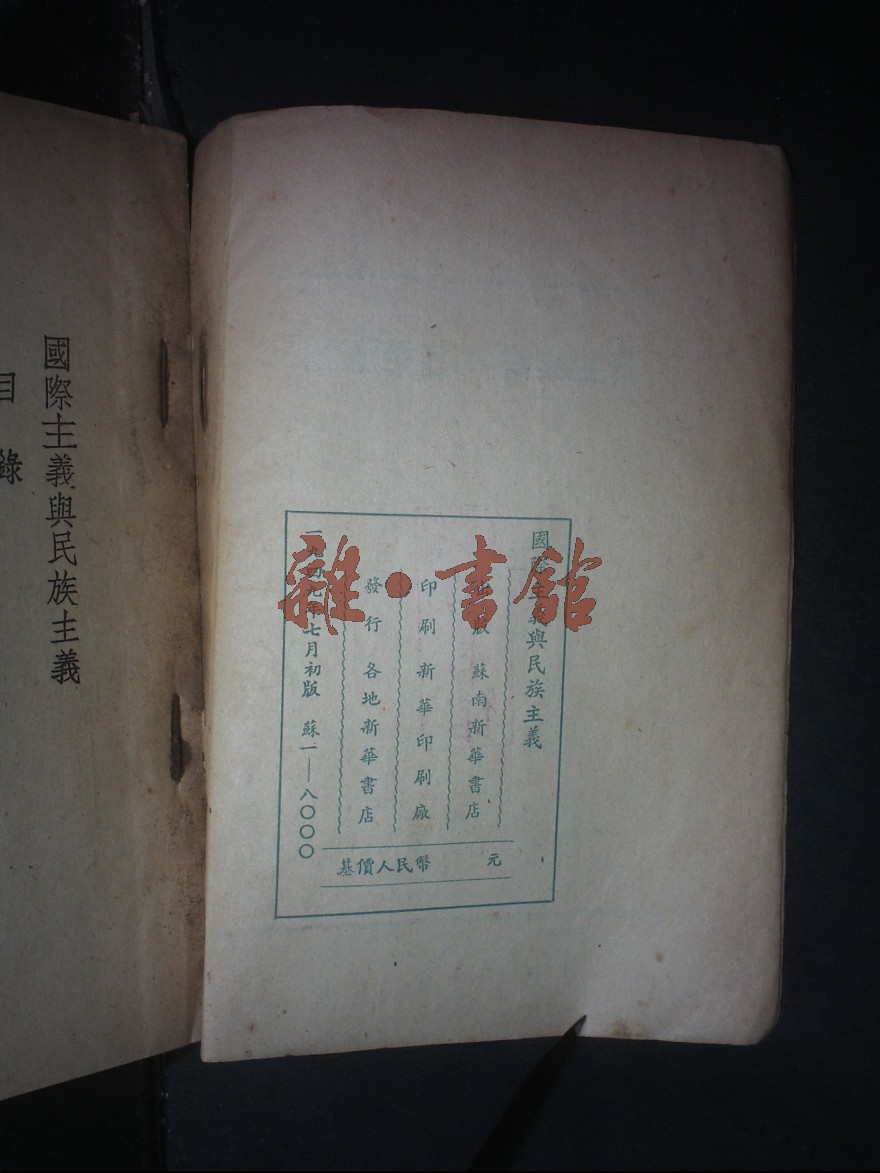 國際主義與民族主義
出版 蘇南新華書店
印刷 新華印刷廠
發行 各地新華書店
基價人民幣 元
一九四九年七月初版 蘇一—八〇〇〇
國際主義與民族主義
目錄
雜·書館